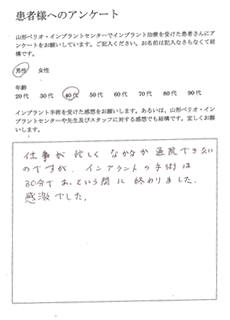 患者様へのアンケート
山形ペリオ・インプラントセンターでインプラント治療を受けた患者さんにア
ンケートをお願いしています。ご記入ください。お名前は記入さなくて結
構です。
男性 女性
年齢
20代 30代 40代 50代 60代 70代 80代 90代
インプラント手術を受けた感想をお願いします。あるいは、山形ペリオ・イン
プラントセンターや先生及びスタッフに対する感想でも結構です。宜しくお願
いします。
仕事が忙しく なかなか通院できない
のですが、インプラントの手術は
30分であっという間に終わりました。
感激でした。